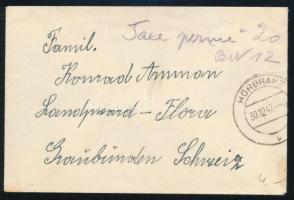 "Taxe perçue" 20
BW 12
Famil.
Konrad Ammon
Landquard - Flora
Graubünden Schweiz
HÖRBRANZ
30.12.47
4.-